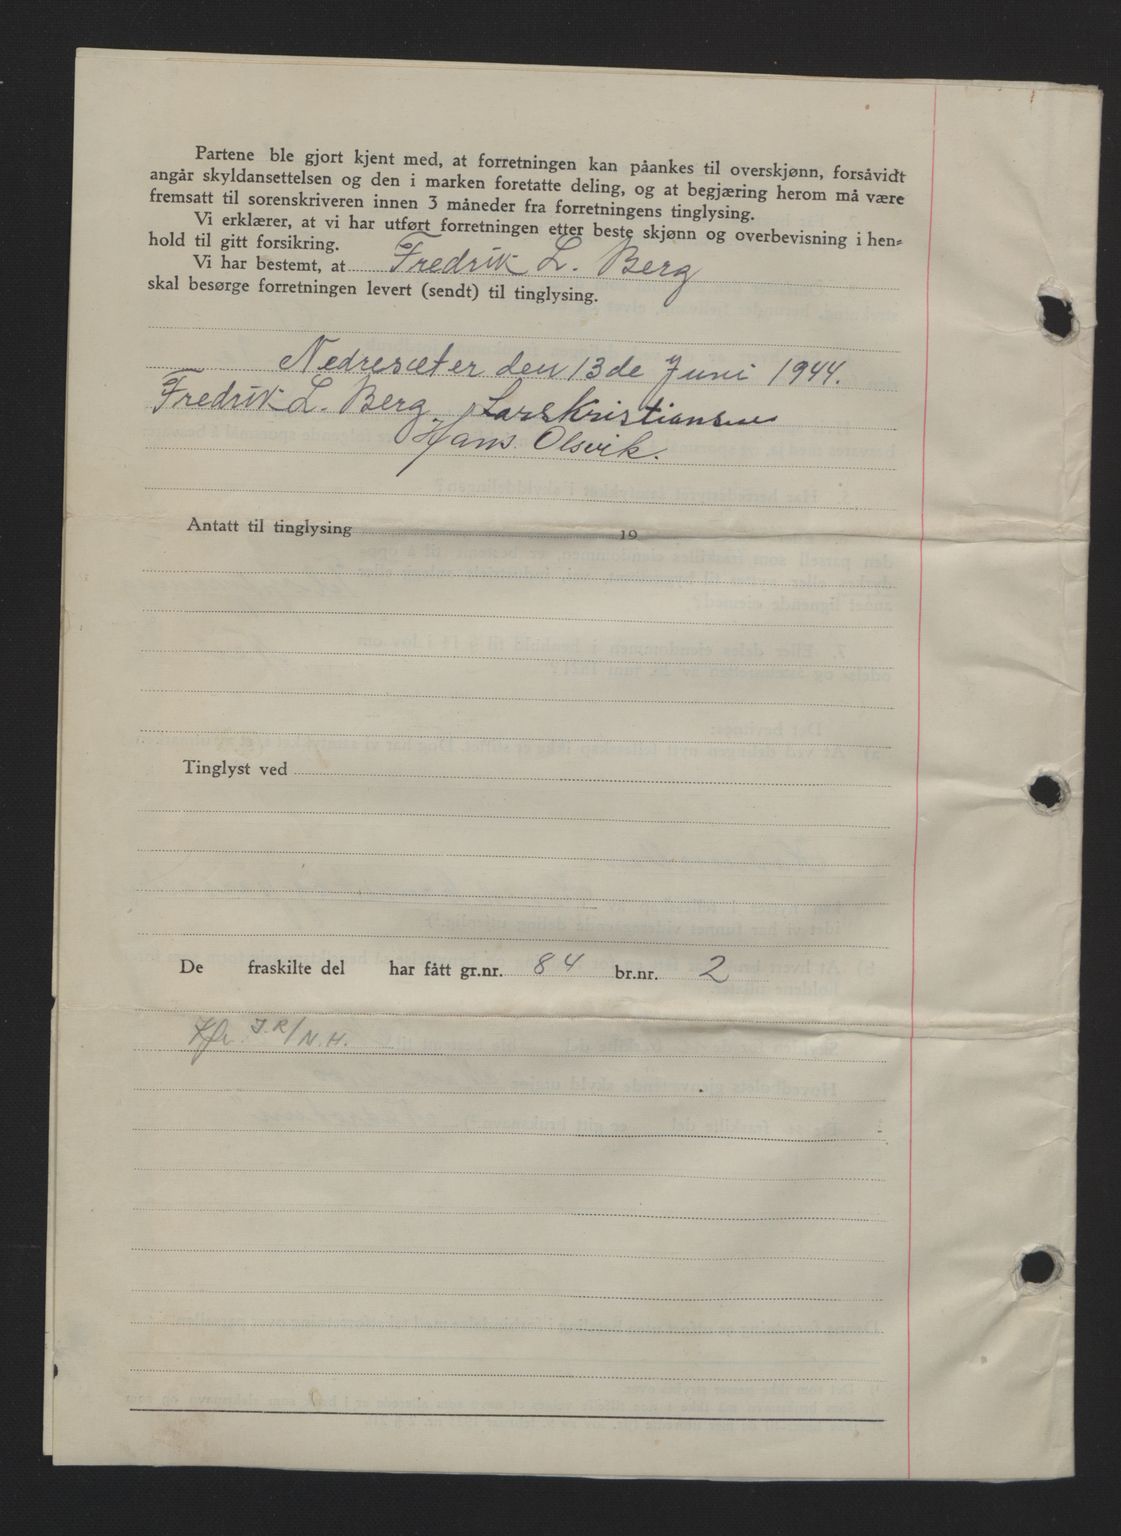 Partene ble gjort kjent med, at forretningen kan påankes til overskjønn, forsåvidt
angår skyldansettelsen og den i marken foretatte deling, og at begjæring herom må være
fremsatt til sorenskriveren innen 3 måneder fra forretningens tinglysing.
Vi erklærer, at vi har utført forretningen etter beste skjønn og overbevisning i hen=
hold til gitt forsikring.
Vi har bestemt, at Fredrik L. Berg
skal besørge forretningen levert (sendt) til tinglysing.
Nedresæter den 13de Juni 1944.
Fredrik L. Berg Lars Kristiansen
Hans Olsvik.
Antatt til tinglysing 19
Tinglyst ved
De fraskilte del har fått gr.nr. 84 br.nr. 2
J.R/N.H.